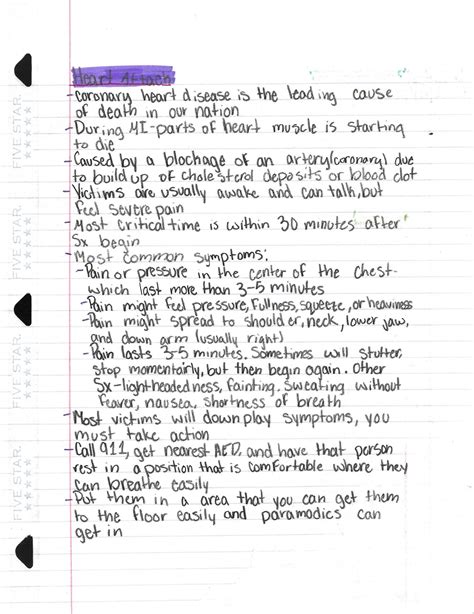 Heart Attack
-Coronary heart disease is the leading cause
of death in our nation
-During MI-parts of heart muscle is starting
to die
-Caused by a blochage of an artery(coronary) due
to build up of cholesterol deposits or blood clot
-Victims are usually awake and can talk, but
feel severe pain
-Most critical time is within 30 minutes after
Sx begin
-Most common symptoms:
-Pain or pressure in the center of the chest-
which last more than 3-5 minutes
-Pain might feel pressure, fullness, squeeze, or heaviness
-Pain might spread to shoulder, neck, lower jaw,
and down arm (usually right)
-Pain lasts 3-5 minutes. Sometimes will stutter,
stop momentairly, but then begin again. Other
Sx-light-headedness, fainting. Sweating without
feaver, nausea, shortness of breath
-Most victims will downplay symptoms, you
must take action
-Call 911, get nearest AED, and have that person
rest in a position that is comfortable where they
can breathe easily
-Put them in a area that you can get them
to the floor easily and paramodics can
get in
FIVE STAR.
FIVE STAR.
FIVE STAR.
FIVE STAR.